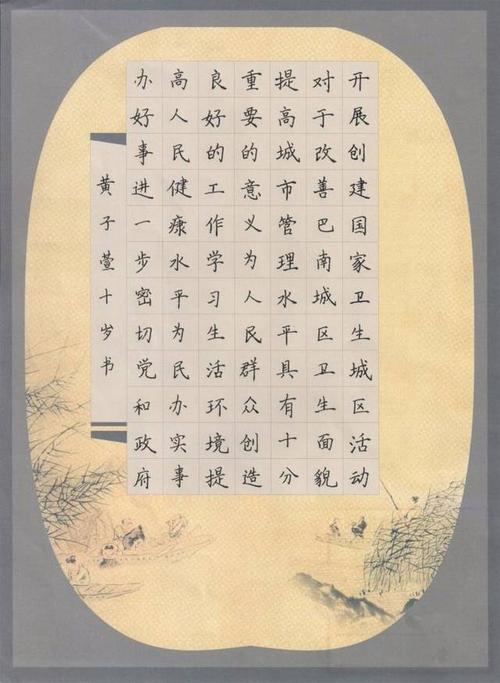 开展创建国家卫生城区活动
对于改善巴南城区卫生面貌
提高城市管理水平具有十分
重要的意义为人民群众创造
良好的工作学习生活环境提
高人民健康水平为民办实事
办好事进一步密切党和政府
黄子萱十岁书